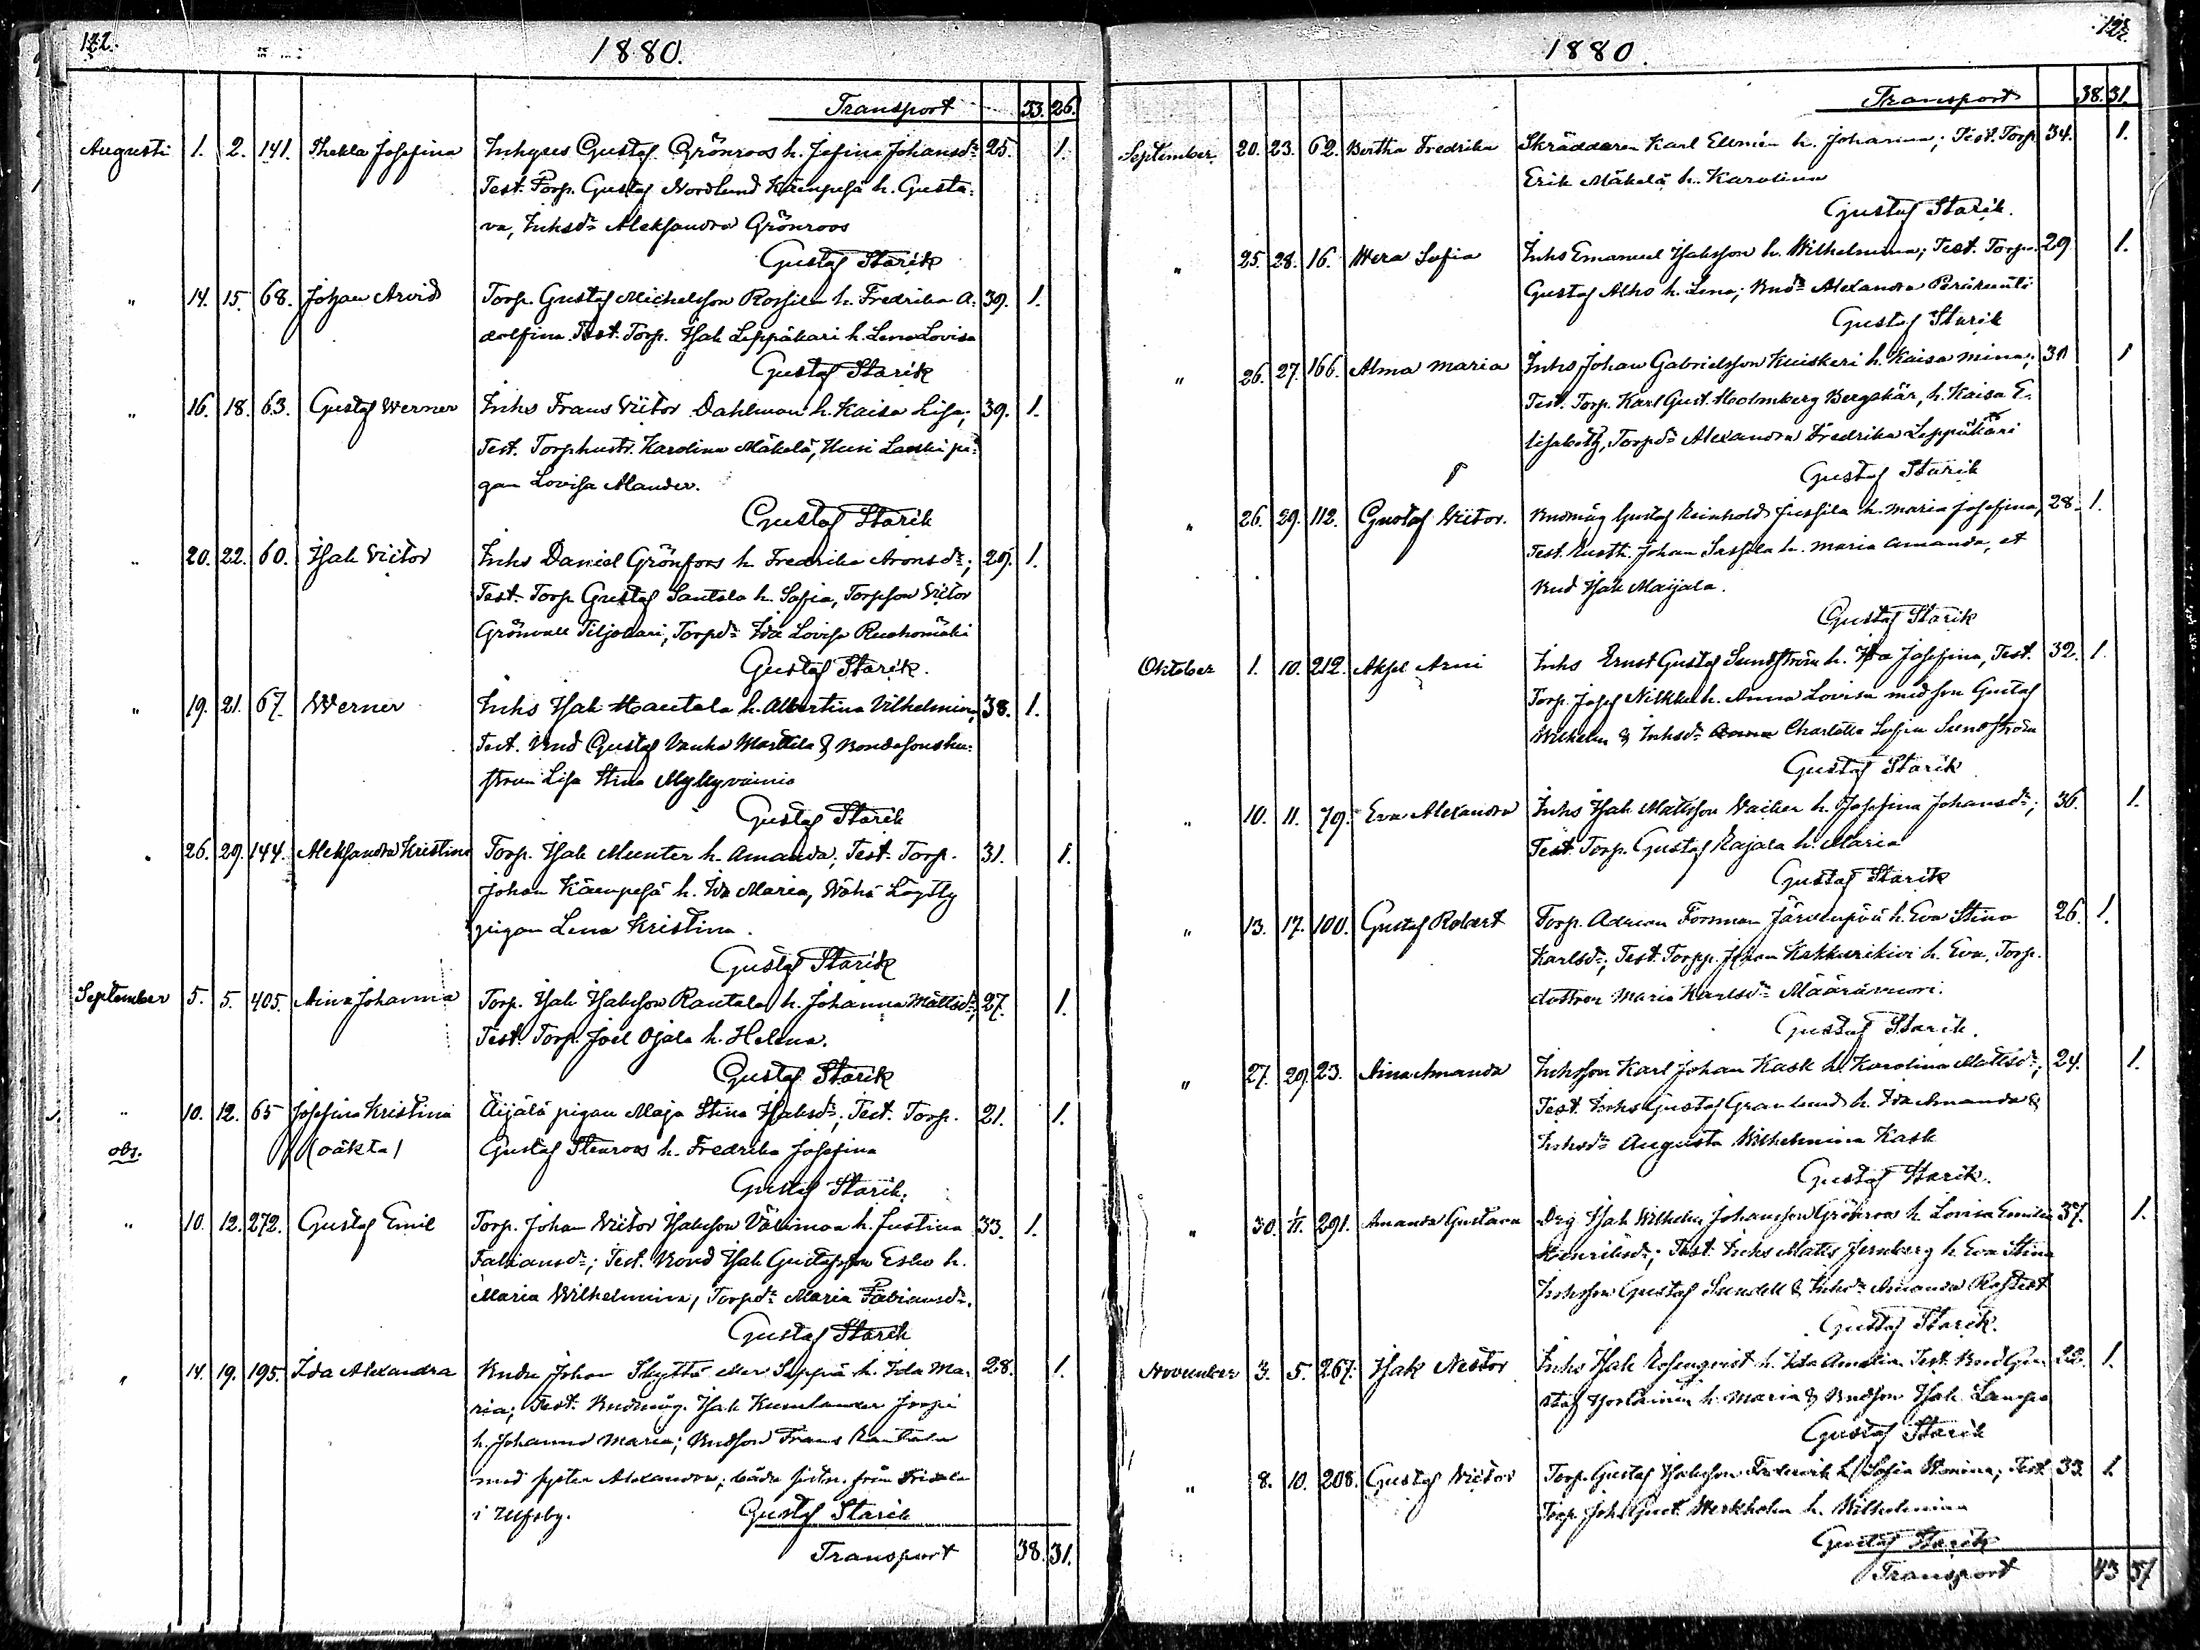 122.
1880.
Transport 33. 26.
Augusti 1. 2. 141. Thekla Josefina Inhyses Gustaf Grönroos h. Josefina Johansdr 25. 1.
Test. Torp. Gustaf Nordlund Kämpepä h. Gusta-
va, Inhsdr Aleksandra Grönroos
Gustaf Starik
" 14. 15. 68. Johan Arvid Torp. Gustaf Michelsson Rossila h. Fredrika A- 39. 1.
dolfina. Test. Torp. Isak Leppäkari h. Lena Lovisa
Gustaf Starik
" 16. 18. 63. Gustaf Werner Inhs Frans Victor Dahlman h. Kaisa Lisa; 39. 1.
Test. Torphustr. Karolina Mäkelä, Uusi Lanki pi-
gan Lovisa Alander.
Gustaf Starik
" 20. 22. 60. Isak Victor Inhs Daniel Grönfors h. Fredrika Aronsdr; 29. 1.
Test. Torp. Gustaf Santala h. Sofia, Torpson Victor
Grönvall Tiljokari, Torpdr Ida Lovisa Ruohomäki
Gustaf Starik.
" 19. 21. 67. Werner Inhs Isak Hautala h. Albertina Vilhelmina, 38. 1.
Test. Bnd Gustaf Vanha Marttila & Bondesonshu-
strun Lisa Stina Myllyvainio
Gustaf Starik
" 26. 29. 144. Aleksandra Kristina Torp. Isak Munter h. Amanda; Test. Torp. 31. 1.
Johan Kämpepä h. Ida Maria, Wähä Löytty
pigan Lena Kristina.
Gustaf Starik
September 5. 5. 405. Aina Johanna Torp. Isak Isaksson Rautala h. Johanna Mattsdr; 27. 1.
Test. Torp. Joel Ojala h. Helena.
Gustaf Starik
" 10. 12. 65 Josefina Kristina Äijälä pigan Maja Stina Isaksdr; Test. Torp. 21. 1.
obs. (oäkta) Gustaf Stenroos h. Fredrika Josefina
Gustaf Starik.
" 10. 12. 272. Gustaf Emil Torp. Johan Victor Isaksson Välimaa h. Justina 33. 1.
Fabiansdr; Test. Bond Isak Gustafsson Esko h.
Maria Wilhelmina, Torpdr Maria Fabiansdr.
Gustaf Starik
" 14. 19. 195. Ida Alexandra Bnden Johan Skyttä Seppä h. Ida Ma- 28. 1.
ria; Test. Bndmåg. Isak Kumlander
h. Johanna Maria; Bndson Frans Rautala
med syster Alexandra; båda från
i Ulfsby. Gustaf Starik
Transport 38. 31.
123.
1880.
Transport 38. 31.
September 20. 23. 62. Bertha Fredrika Skräddaren Karl Ekmén h. Johanna; Test. Torp. 34. 1.
Erik Mäkelä h. Karolina
Gustaf Starik.
" 25. 28. 16. Wera Sofia Inhs Emanuel Isaksson h. Wilhelmina; Test. Torp. 29 1.
Gustaf Alho h. Lena; Bnddr Alexandra
Gustaf Starik
" 26. 27. 166. Alma Maria Inhs Johan Gabrielsson Kuiskeri h. Kaisa Mina; 31 1
Test. Torp. Karl Gust. Holmberg Bergskär, h. Kaisa E-
lisabeth, Torpdr Alexandra Fredrika Leppäkari
Gustaf Starik
" 26. 29. 112. Gustaf Victor. Bndmåg Gustaf Reinhold Jussila h. Maria Josefina, 28. 1.
Test. Rusth. Johan Sassila h. Maria Amanda, et
Bnd Isak Maijala.
Gustaf Starik
Oktober 1. 10. 212. Aksel Arvi Inhs Ernst Gustaf Sundström h. Ida Josefina, Test. 32. 1.
Torp. Josef Nikkka h. Anna Lovisa med son Gustaf
Wilhelm & Inhsdr Charlotta Sofia Sundström
Gustaf Starik
" 10. 11. 79. Eva Alexandra Inhs Isak Mattsson Vacker h. Josefina Johansdr; 36. 1.
Test. Torp. Gustaf Rajala h. Maria
Gustaf Starik
" 13. 17. 100. Gustaf Robert Torp. Adrian Forsman Järvenpää h. Eva Stina 26. 1.
Karlsdr; Test. Torpp. Johan Kakkurikivi h. Eva, Torp.
dottren Maria Karlsdr Määrävuori.
Gustaf Starik.
" 27. 29. 23. Aina Amanda Inhsson Karl Johan Kask h. Karolina Mattsdr; 24. 1.
Test. Inhs Gustaf Granlund h. Ida Amanda &
Inhsdr Augusta Wilhelmina Kask
Gustaf Starik.
" 30. 1/11. 291. Amanda Gustava Drg Isak Wilhelm Johansson Grönroos h. Lovisa Emilia 37. 1.
Henriksdr; Test. Inhs Matts Jernberg h. Eva Stina
Inhsson Gustaf Sundell & Inhsdr Amanda
Gustaf Starik.
November 3. 5. 267. Isak Nestor Inhs Isak Rosenqvist h. Ida Amalia. Test. Bnd Gu- 22. 1.
staf h. Maria & Bndson Isak Lampa
Gustaf Starik
" 8. 10. 208. Gustaf Victor Torp. Gustaf Isaksson Frederik h. Sofia Stenina; Test. 33. 1.
Torp. Joh. Gust. Werkholm h. Wilhelmina
Gustaf Starik
Transport 43 37